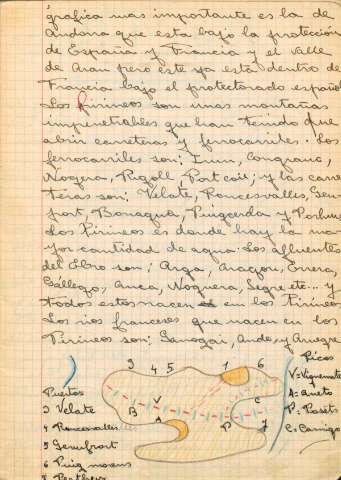 gráfica mas importante es la de
Andorra que esta bajo la protección
de España y Francia y el Valle
de Aran pero este ya está dentro de
Francia bajo el protectorado español
Los Pirineos son unas montañas
impenetrables que han tenido que
abrir carreteras y ferrocarriles. Los
ferrocarriles son: Irun,
Noguera, Rigoll, Port y las carre
teras son: Velate, Roncesvalles,
port, Bonagua, Puigcerda y
Los Pirineos es donde hay la ma
yor cantidad de agua. Los afluentes
del Ebro son; Arga, Aragon,
Gállego, Noguera, Segre etc... y
todos estos nacen en los Pirineos
Los rios franceses que nacen en los
Pirineos son: y
3 4 5 1 6
B V A P C 7
Picos
V=Vignemale
A=Aneto
P=Posets
C=Canigo
Puertos
3 Velate
4 Roncesvalles
5
6 Puig morens
7 Perthus